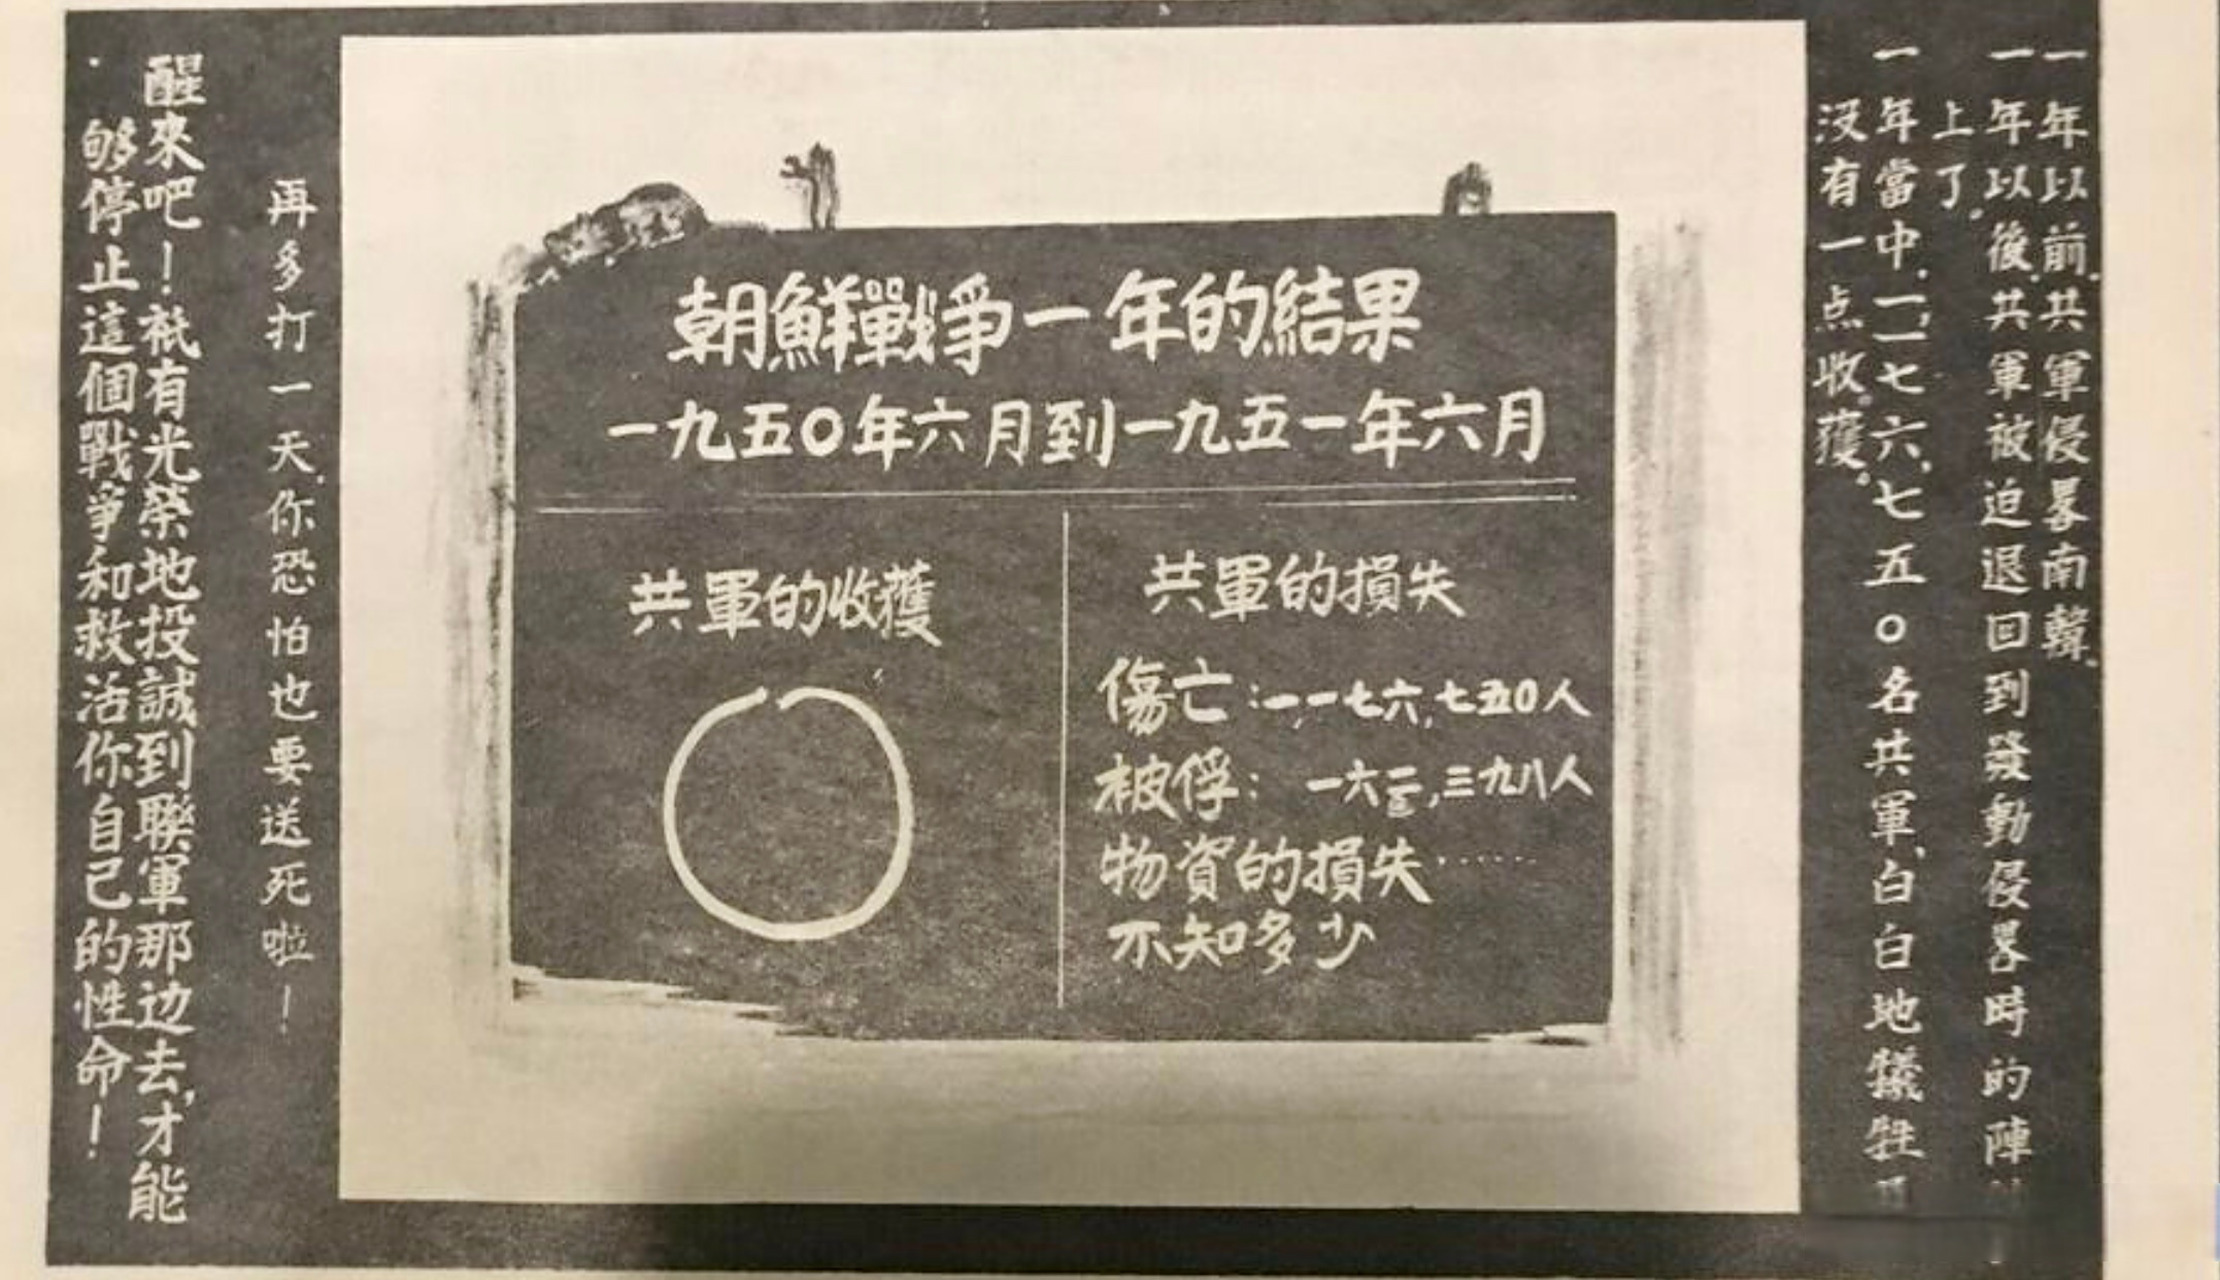 一年以前，共軍侵畧南韓，
一年以後，共軍被迫退回到發動侵畧時的陣
上了。
一年當中，一，一七六，七五〇名共軍，白白地犧牲
没有一点收獲。
朝鮮戰爭一年的結果
一九五〇年六月到一九五一年六月
共軍的損失
傷亡：一，一七六，七五〇人
被俘：一六三，三九八人
物資的損失……
不知多少
共軍的收獲
再多打一天，你恐怕也要送死啦！
醒來吧！祇有光榮地投誠到聯軍那边去，才能
够停止這個戰爭和救活你自己的性命！